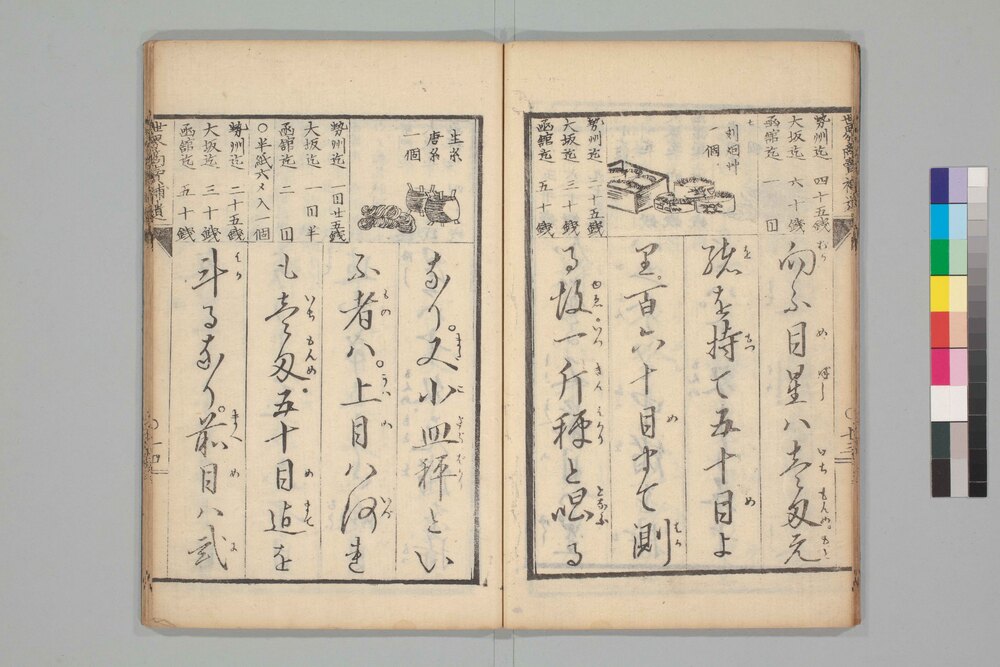 勢州迄 四十五銭
大坂迄 六十銭
函館迄 一回
刻烟艸
一個
勢州迄 二十五銭
大坂迄 三十銭
函館迄 五十銭
向ふ目星ハ壱匁元
緒を持て五十目よ
里。百六十目まて測
る故一斤秤と唱る
生糸
唐糸
一個
勢州迄 一回廿五銭
大坂迄 一回半
函館迄 二回
〇半紙六〆入一個
勢州迄 二十五銭
大坂迄 三十銭
函館迄 五十銭
なり。又小皿秤とい
ふ者ハ。上目ハ何連
も壱匁。五十目迄を
斗るなり。前目ハ弐